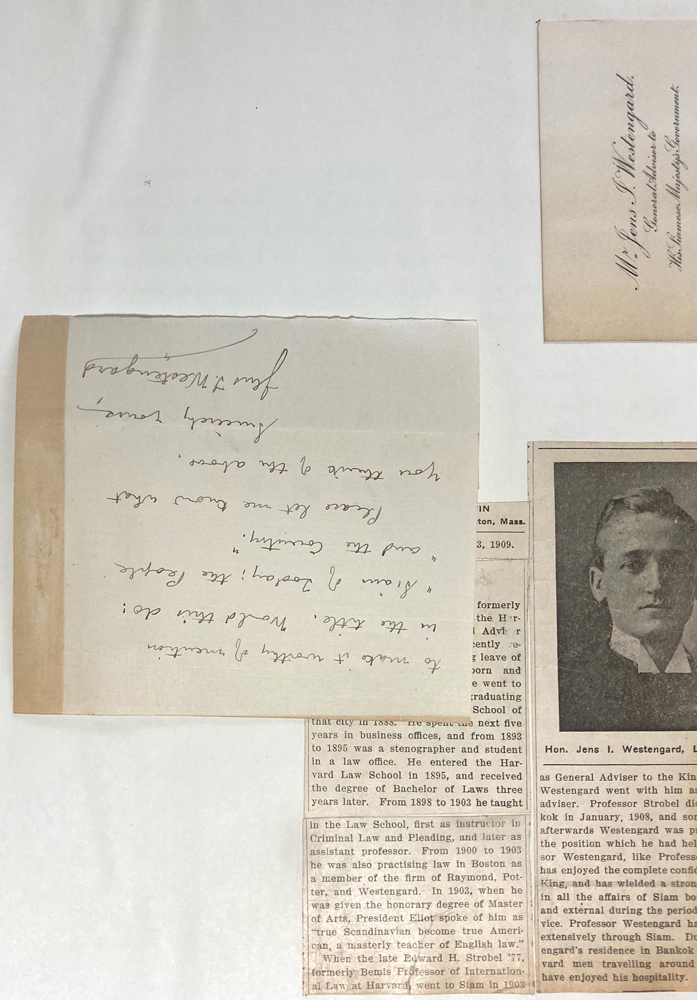 Mr. Jens I. Westengard.
General Adviser to
His Siamese Majesty's Government.
to make it worthy of mention
in the title. Would this do:
"Siam of Today; the People
"and the Country."
Please let me know what
you think of the above.
Sincerely yours,
Jens I. Westengard
TIN
ton, Mass.
3, 1909.
formerly
the Har-
Advi r
cently e-
g leave of
born and
e went to
graduating
School of
that city in 1888. He spent the next five
years in business offices, and from 1893
to 1895 was a stenographer and student
in a law office. He entered the Har-
vard Law School in 1895, and received
the degree of Bachelor of Laws three
years later. From 1898 to 1903 he taught
in the Law School, first as instructor in
Criminal Law and Pleading, and later as
assistant professor. From 1900 to 1903
he was also practising law in Boston as
a member of the firm of Raymond, Pot-
ter, and Westengard. In 1903, when he
was given the honorary degree of Master
of Arts, President Eliot spoke of him as
"true Scandinavian become true Ameri-
can, a masterly teacher of English law."
When the late Edward H. Strobel '77,
formerly Bemis Professor of Internation-
al Law at Harvard, went to Siam in 1903
Hon. Jens I. Westengard, L
as General Adviser to the Kin
Westengard went with him as
adviser. Professor Strobel die
kok in January, 1908, and som
afterwards Westengard was pr
the position which he had hel
sor Westengard, like Profess
has enjoyed the complete confid
King, and has wielded a stron
in all the affairs of Siam bo
and external during the period
vice. Professor Westengard ha
extensively through Siam. Du
engard's residence in Bankok
vard men travelling around
have enjoyed his hospitality.